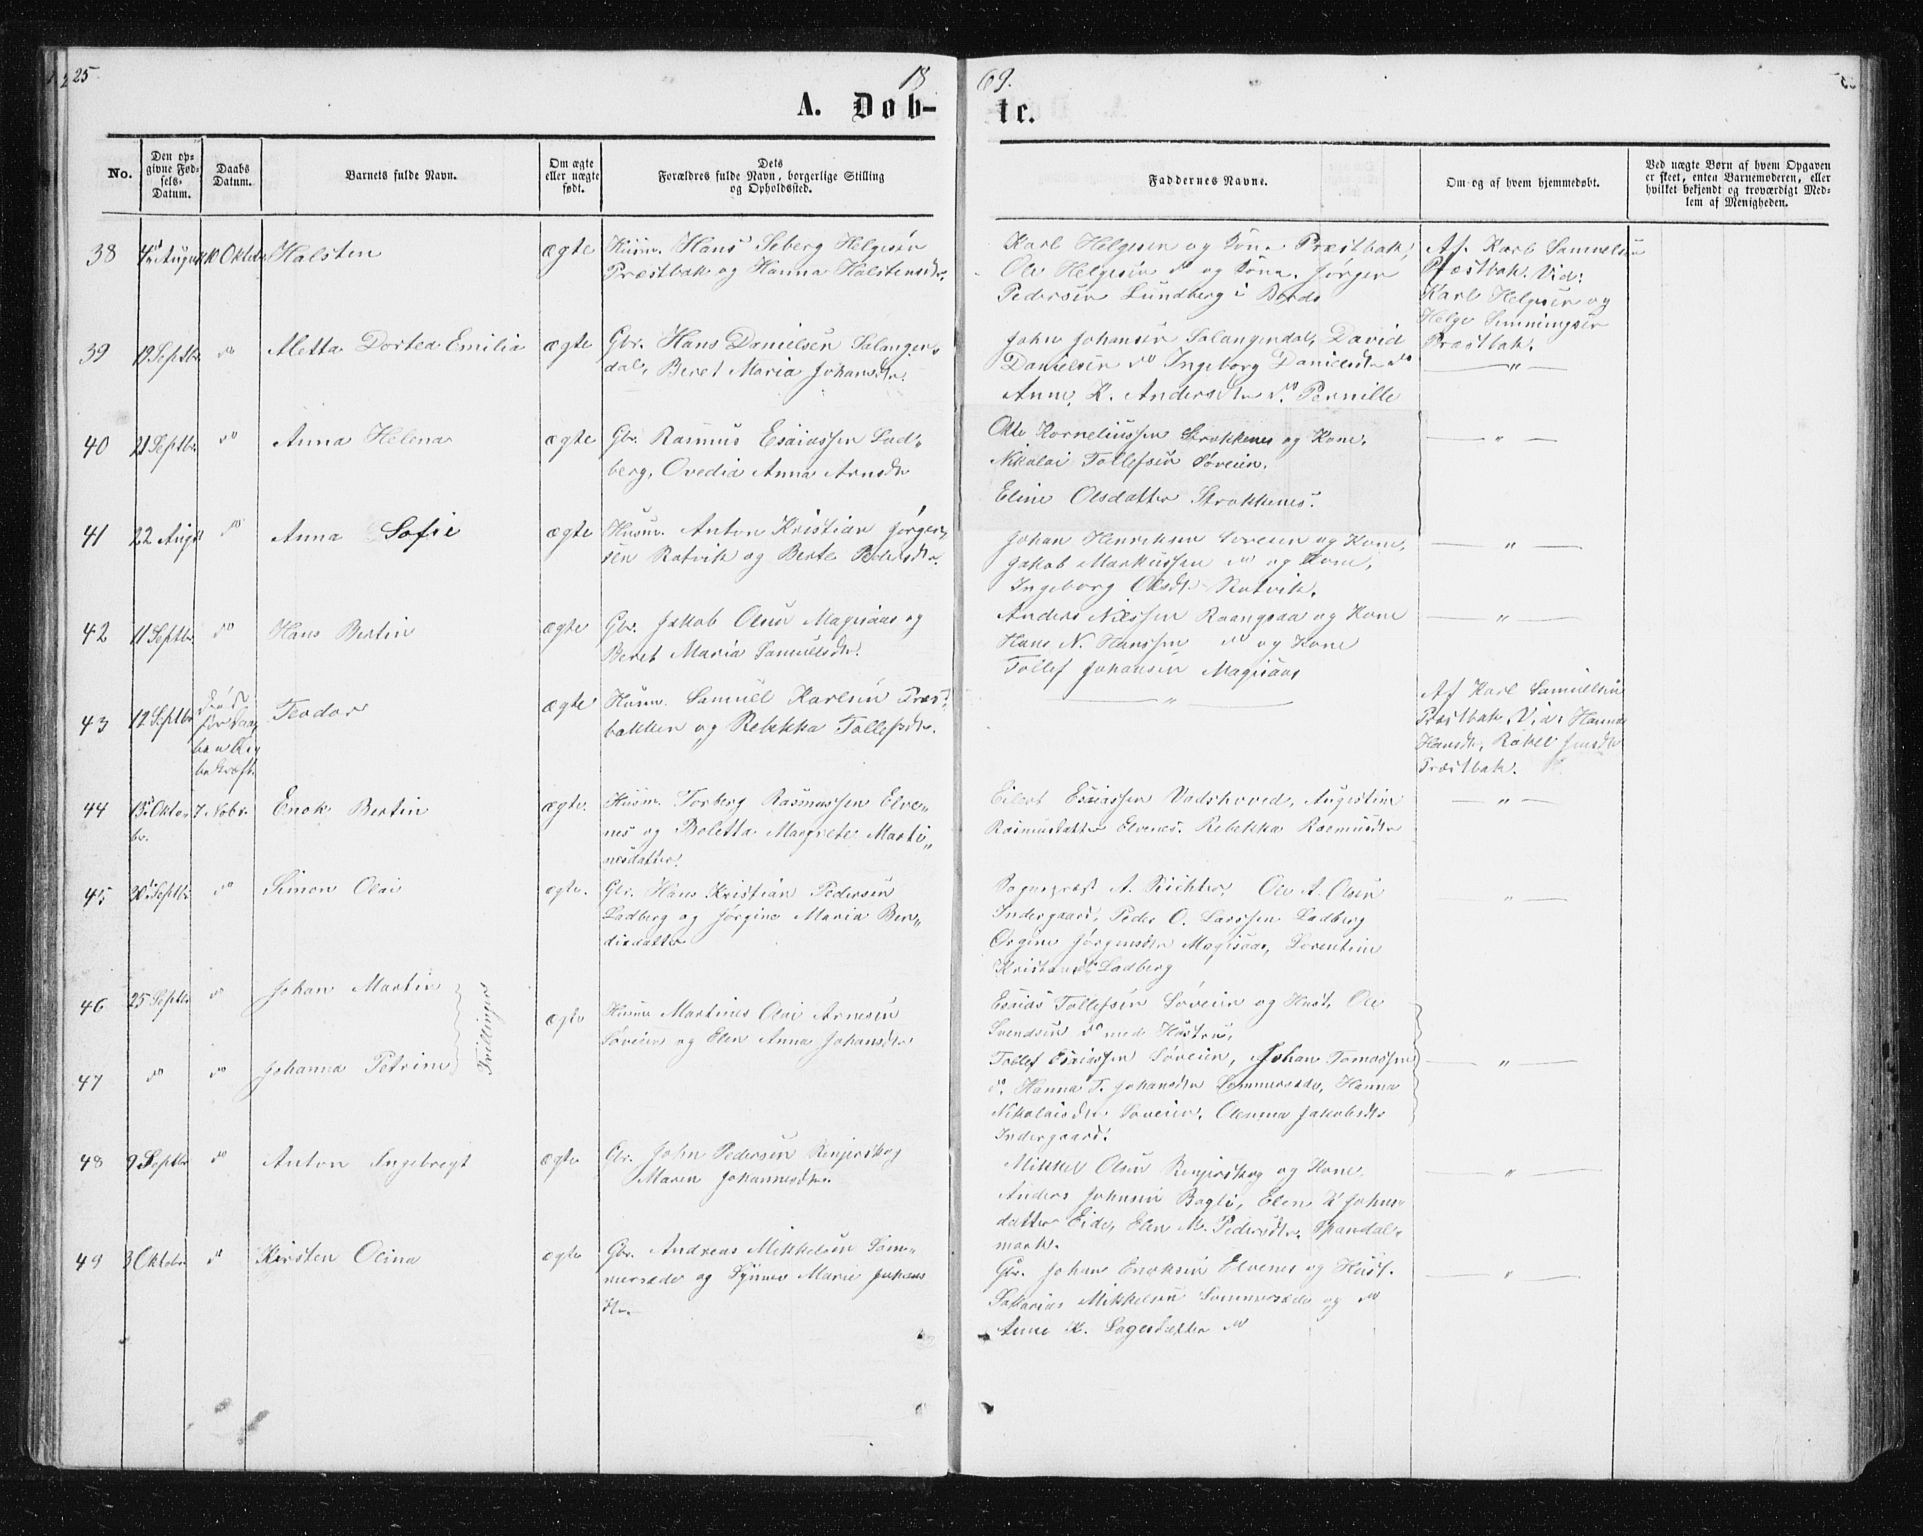 25
18
69.
A. Døb-
te.
No.
Den op-
givne Fød-
sels-
Datum.
Daabs
Datum.
Barnets fulde Navn.
Om ægte
eller uægte
født.
Dets
Forældres fulde Navn, borgerlige Stilling
og Opholdssted.
Faddernes Navne.
Om og af hvem hjemmedøbt.
Ved uægte Børn af hvem Opgaven
er skeet, enten Barnemoderen, eller
hvilket bekjendt og troværdigt Med-
lem af Menigheden.
38 10 Oktobr Halsten ægte Husm. Hans Seberg Helgesen
Præstbak og Hanna Halstensdtr.
Karl Helgesen og Præstbak,
Ole Helgesen do og Jørgen
Pedersen Lundberg i
Af Karl Samuelsen
Præstbak. Vid:
Karl Helgesen og
Helge
Præstbak.
39 12 Septbr do Aletta Dortea Emilia ægte Gbr. Hans Danielsen Salangs-
dal, Beret Maria Johansdtr.
John Johansen Salangsdal, David
Danielsen do Ingeborg Danielsdtr do
Anne K. Andersdtr do Pernille
— " —
40 21 Septbr. do Anna Helena ægte Gbr. Rasmus Esaiassen Lad-
berg, Ovedia Anna Arnsdtr
Otto Korneliussen Strokkenes og Kone,
Nikolai Tollefsen Søveien,
Eline Olsdatter Strokkenes.
— " —
41 22 Augst do Anna Sofie ægte Husm. Anton Kristian Jørgen-
sen Rotvik og Berte
Johan Henriksen Søveien og Kone,
Jakob Markussen do og Kone,
Ingeborg Olsdtr Rotvik.
— " —
42 11 Septbr. do Hans Bertin ægte Gbr. Jakob Olsen Magisaas og
Beret Maria Samuelsdtr.
Anders Nilssen Raangsaa og Kone
Hans N. Hanssen do og Kone
Tollef Johansen Magisaas
— " —
43 12 Septbr død
før Teodor ægte Husm. Samuel Karlsen Præst-
bakken og Rebekka Tollefsdtr.
— " —
Af Karl Samuelsen
Præstbak, Vid: Hanna
Hansdtr, Rakel
Præstbak.
44 15 Okto-
br. 7 Novbr. Enok Bertin ægte. Husm. Torberg Rasmussen Elve-
nes og Boletta Margrete Marti-
nesdatter.
Eilert Esaiassen Vadshoved, Augestine
Rasmusdatter Elvenes. Rebekka Rasmusdtr
— " —
45 20 Septbr do Simon Olai ægte. Gbr. Hans Kristian Pedersen
Ladberg og Jørgine Maria Ben-
diksdatter
Sogneprest A. Richter, Ole A. Olsen
Indergaard, Peder O. Larssen Ladberg
Orgine Jørgensdtr Magisaas, Lorentine
Ladberg
— " —
46 25 Septbr do Johan Martin
Tvillinger
ægte Husm Martines Olai Arnesen
Søveien og Elen Anna Johansdtr
Esaias Tollefsen Søveien og Hust, Ole
Svendsen do med Hustru,
47 do do Johanna Petrine
Tollef Esaiassen Søveien, Johan Tomassen
do, Hanna T. Johansdtr Sommersæde, Hanna
Nikolaisdtr Søveien. Olemma Jakobsdtr
Indergaard.
— " —
48 9 Septbr do Anton Ingebregt ægte Gbr. John Pedersen
Maren Johannesdtr.
Mikkel Olsen og Kone,
Anders Johnsen Bogli, Elen
datter Eide, Elen M. Pedersdtr. Spandal-
mark.
— " —
49 3 Oktobr do Kirsten Olina ægte Gbr. Andreas Mikkelsen Som-
mersæde og Marie Johans
dtr.
Gbr. Johan Enoksen Elvenes og Hust.
Sakarias Mikkelsen Sommersæde og do
Anne K. datter do
— " —